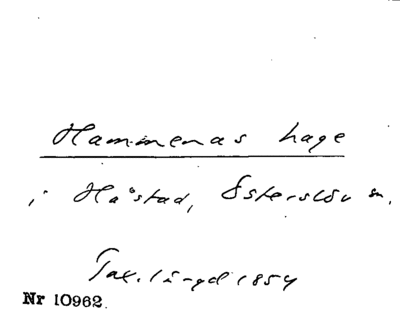 Hammenas hage
i Håstad, Österslöv sn.
Tax.längd 1854
Nr 10962.